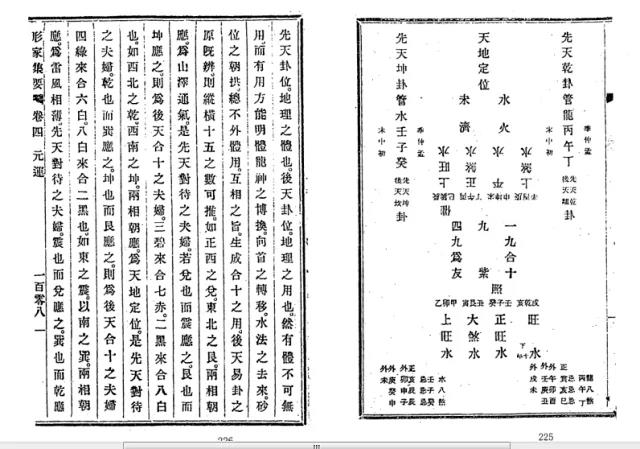 先天乾卦管龍丙午丁 先天乾 後天離 卦
季仲孟
末中初
天地定位
水火
未濟
先天坤卦管水壬子癸 先天坤 後天坎 卦
季仲孟
末中初
一九合十
九紫
四九爲友
照
催
乙卯甲 寅艮丑 癸子壬 亥乾戌
旺水
正旺水
大煞水
上旺水
225
先天卦位。地理之體也。後天卦位。地理之用也。然有體不可無
用。而有用方能明體。龍神之博換。向首之轉移。水法之去來。砂
位之朝拱。總不外體用。互相之旨。生成合十之用。後天易卦之
原既辨。則縱橫十五之數可推。如正西之兌。東北之艮。兩相朝
應。爲山澤通氣。是先天對待之夫婦。若兌也而震應之。艮也而
坤應之。則爲後天合十之夫婦。三碧來合七赤。二黑來合八白
也。如西北之乾。西南之坤。兩相朝應。爲天地定位。是先天對待
之夫婦。乾也而巽應之。坤也而艮應之。則爲後天合十之夫婦
四綠來合六白。八白來合二黑也。如東之震。以南之巽。兩相朝
應。爲雷風相薄。先天對待之夫婦。震也而兌應之。巽也而乾應
形家集要 卷四 元運 一百零八
226